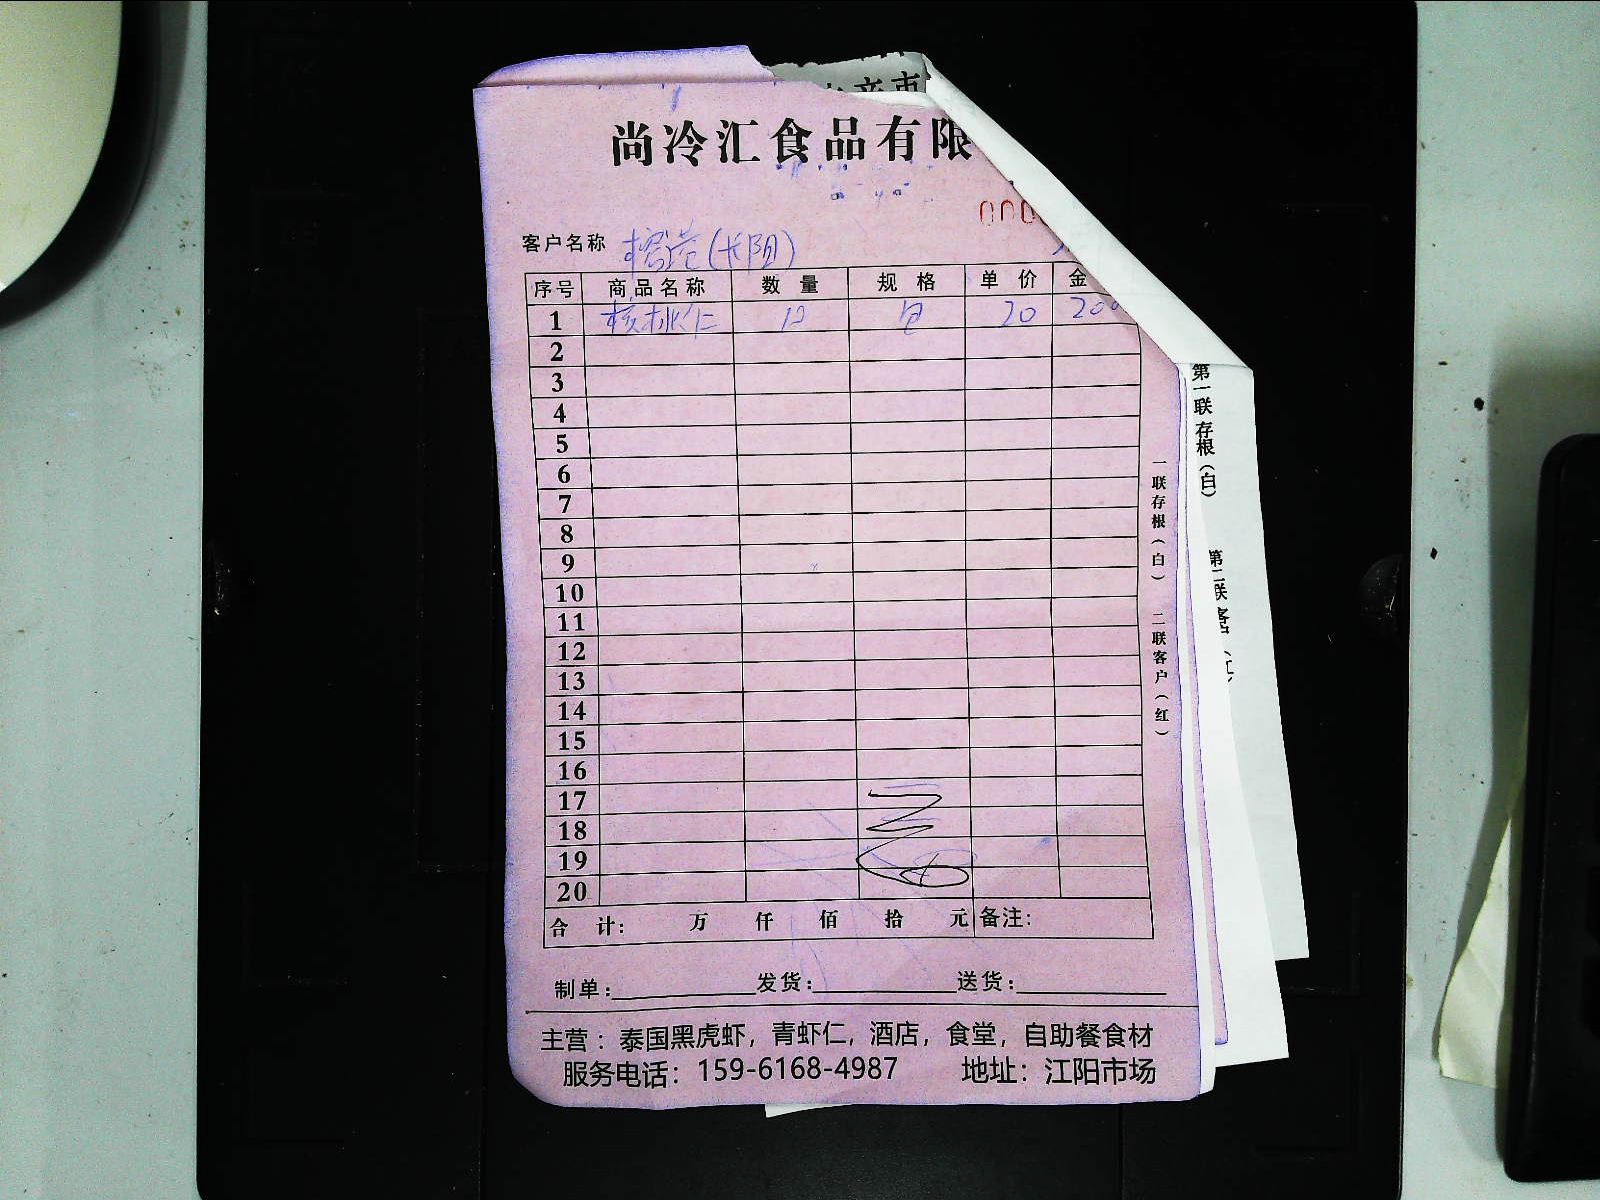 水产市
尚冷汇食品有限
000
客户名称 榕港(长阳)
序号 商品名称 数量 规格 单价 金
1 核桃仁 10 包 20 200
2
3
4
5
6
7
8
9
10
11
12
13
14
15
16
17
18
19
20
合 计: 万 仟 佰 拾 元 备注:
制单: 发货: 送货:
主营：泰国黑虎虾，青虾仁，酒店，食堂，自助餐食材
服务电话：159-6168-4987 地址：江阳市场
一联存根（白） 二联客户（红）
第一联 存根(白)
第二联